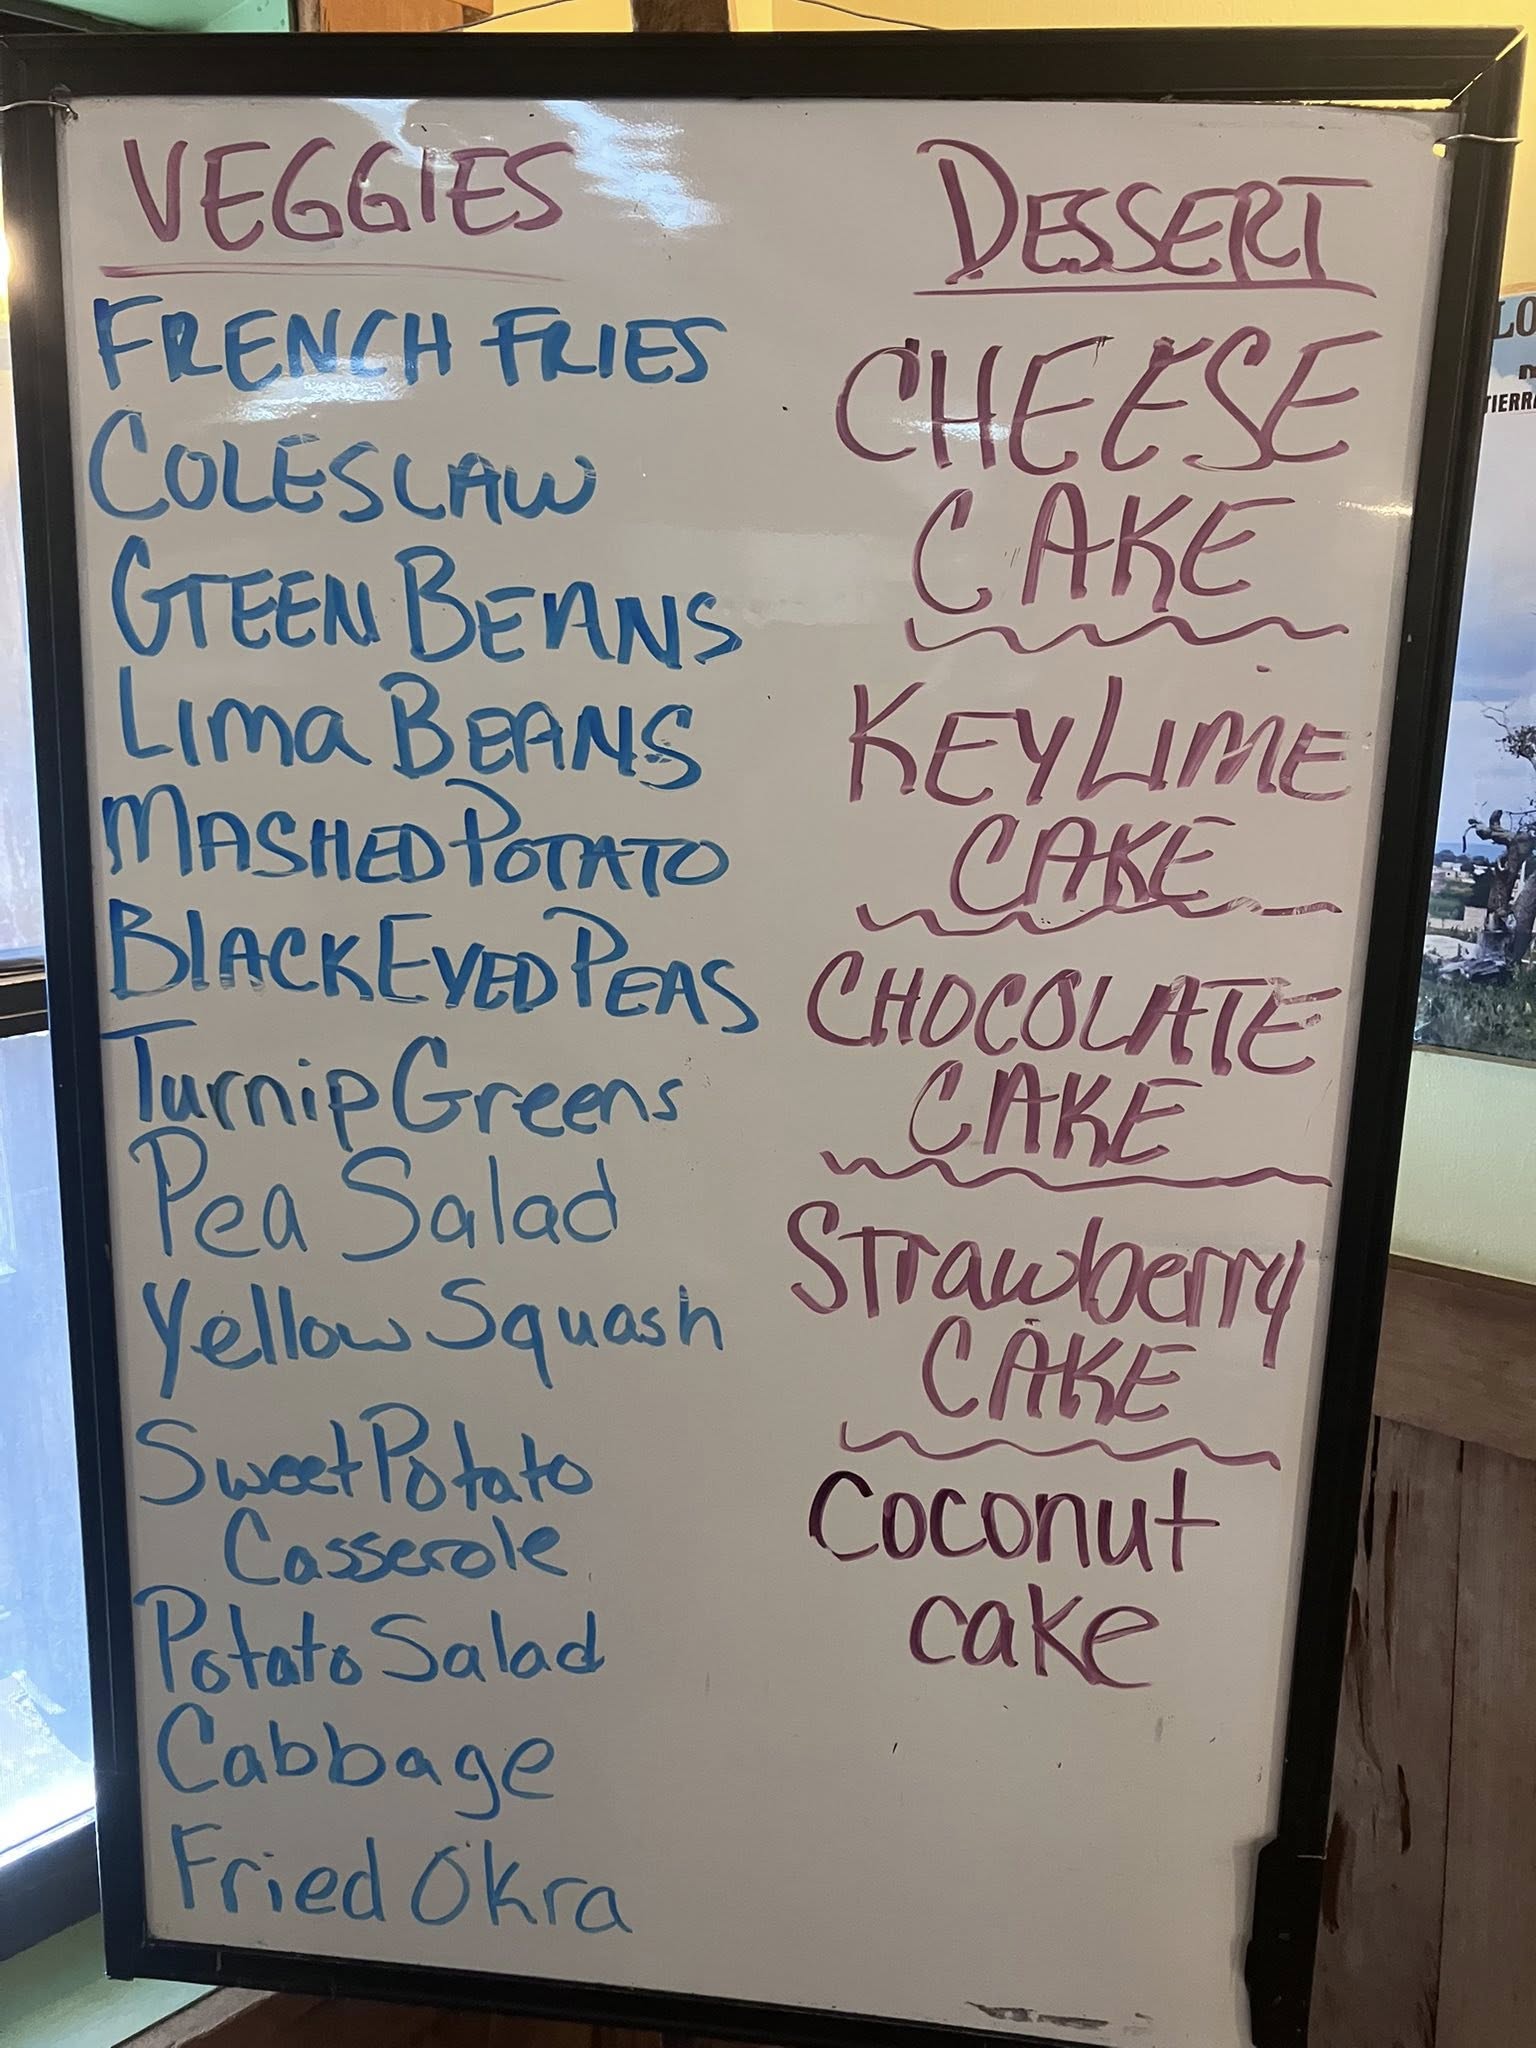 VEGGIES
FRENCH FRIES
COLESLAW
GREEN BEANS
Lima BEANS
MASHED POTATO
BLACK EYED PEAS
Turnip Greens
Pea Salad
Yellow Squash
Sweet Potato
Casserole
Potato Salad
Cabbage
Fried Okra
DESSERT
CHEESE
CAKE
KEY LIME
CAKE
CHOCOLATE
CAKE
Strawberry
CAKE
Coconut
cake
LO
TIERRA